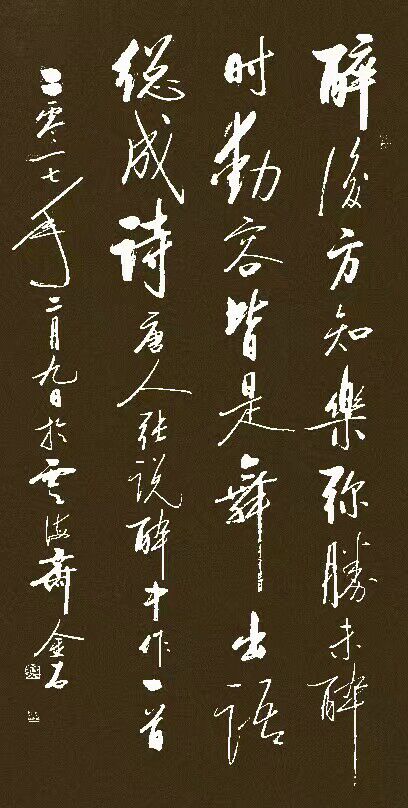 醉後方知樂弥勝未醉
时動容皆是舞出語
總成詩唐人张说醉中作一首
二零一七年二月九日於雲海齋金石